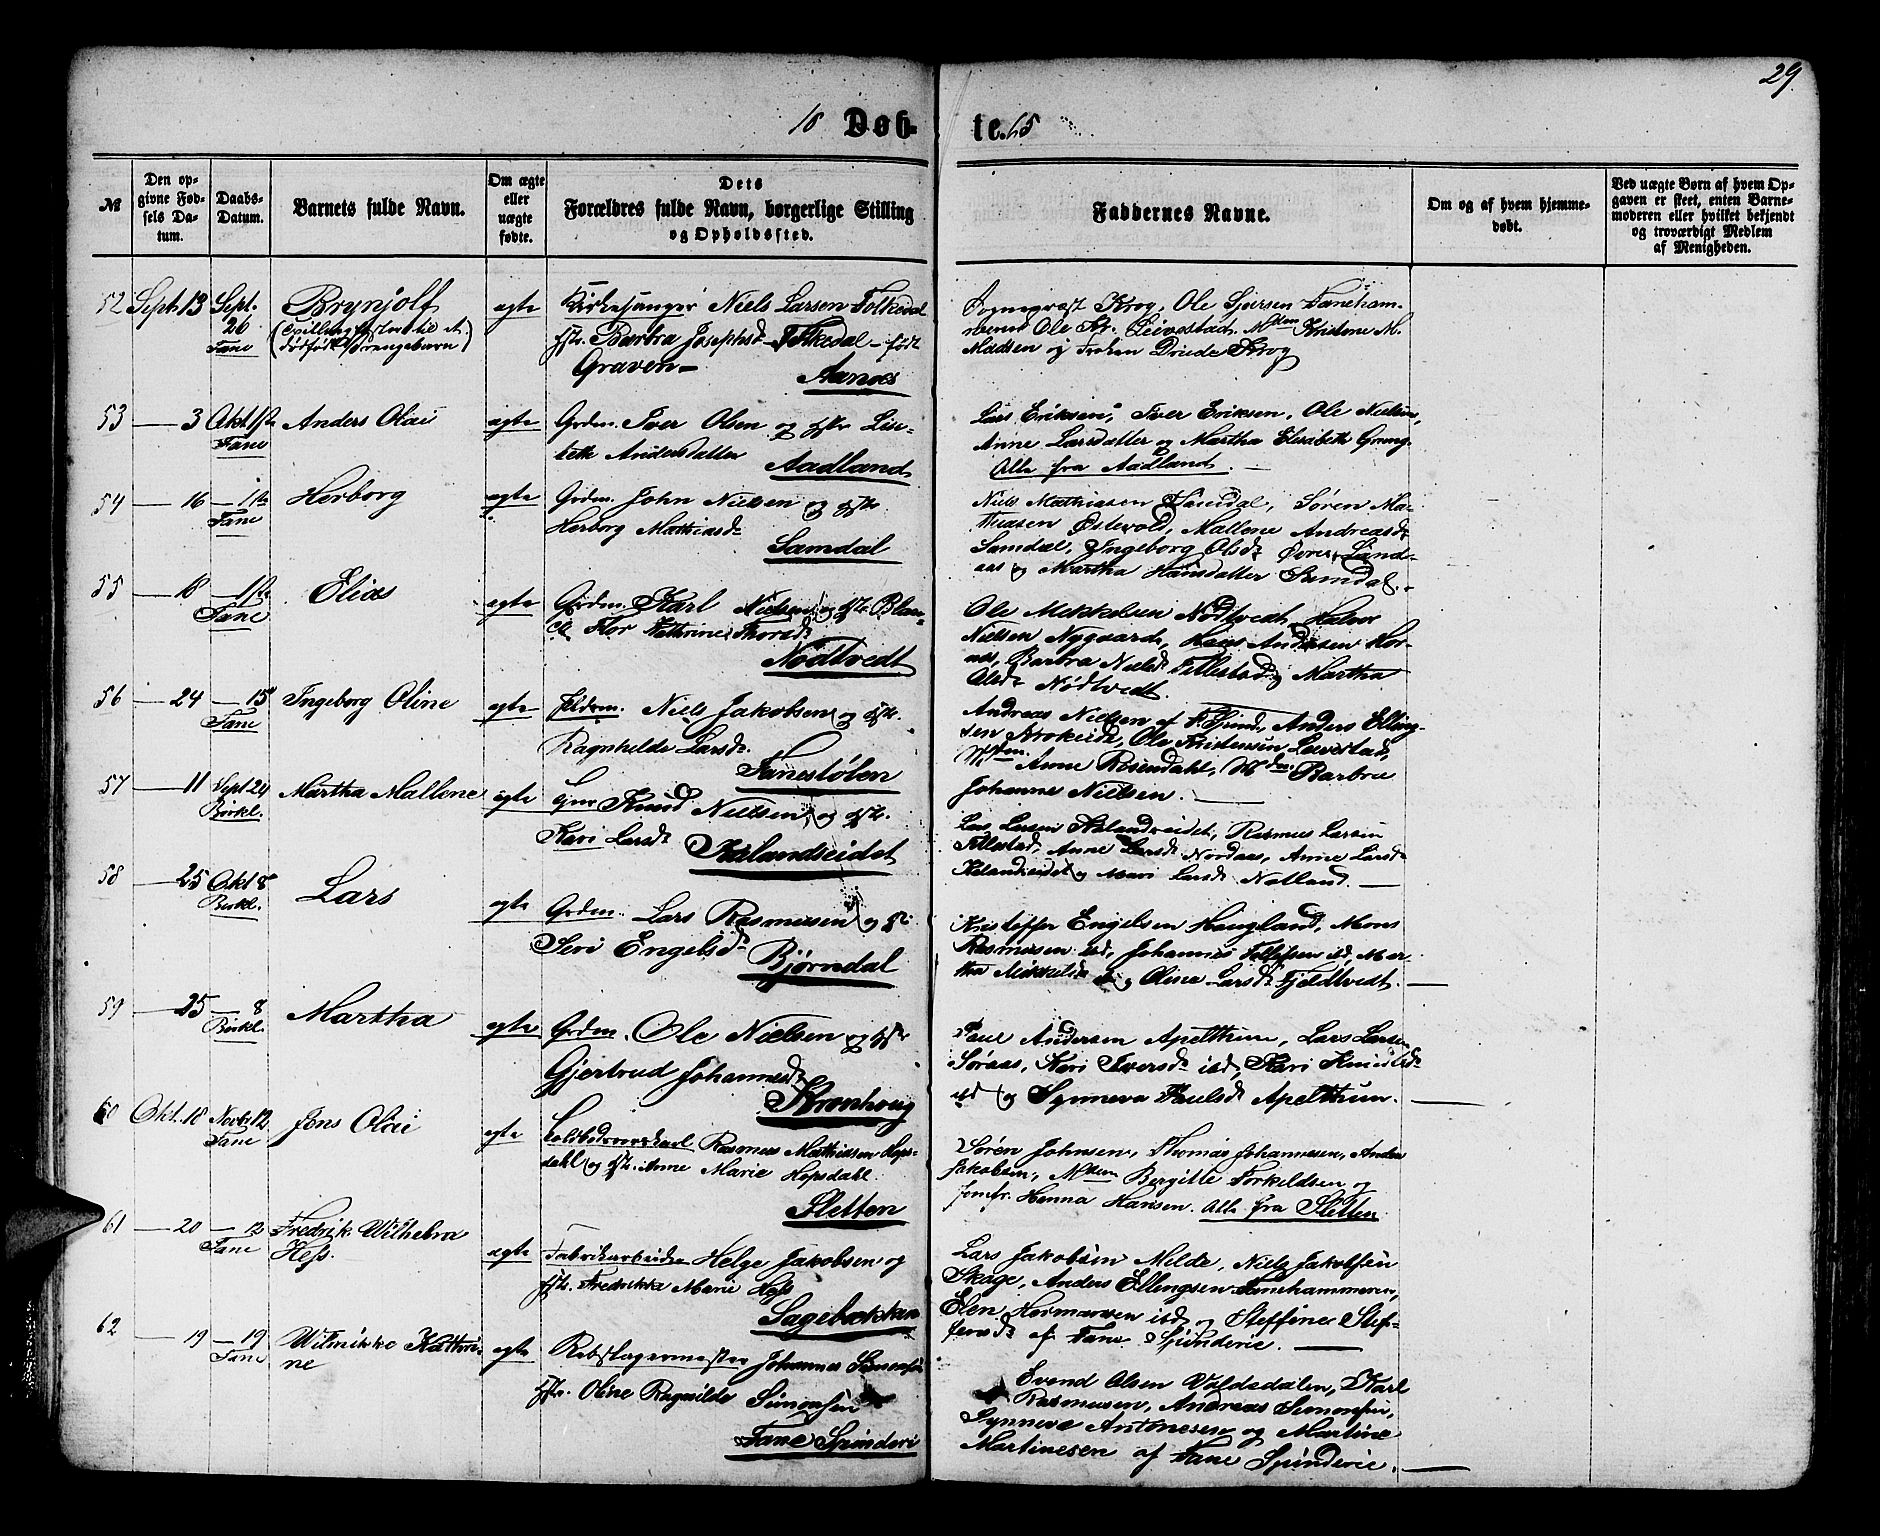 29.
18 Døb-
te. 65
№
Den op-
givne Fød-
sels Da-
tum.
Daabs-
Datum.
Barnets fulde Navn.
Om ægte
eller
uægte
fødte.
Dets
Forældres fulde Navn, borgerlige Stilling
og Opholdssted.
Faddernes Navne.
Om og af hvem hjemme-
døbt.
Ved uægte Børn af hvem Op-
gaven er skeet, enten Barne-
moderen eller hvilket bekjendt
og troværdigt Medlem
af Menigheden.
52 Sept. 13 Sept.
20
Fane
Brynjolf
dødfødt Drengebarn)
ægte
Kirkesanger Niels Larsen Folkedal
Hstr. Barbra Josephsd. Folkedal - født
Graven -
Aanæs
Sogneprest Krog, Ole Sjursen Faneham-
meren Ole Kr. Leivestad. Mdm Kristine M.
Madsen og Frøken Driede Krog
53 — 3 Okt. 1ste
Fane
Anders Olai
ægte
Grdm. Iver Olsen og Hstr. Lis-
beth Andersdatter
Aadland
Lars Eriksen, Iver Eriksen, Ole Nielsen,
Anne Larsdatter og Martha Elisabeth Grung.
Alle fra Aadland. —
54 — 16 — 1ste
Fane
Herborg
ægte
Grdm. John Nielsen og Hstr.
Herborg Mathiasdr.
Samdal
Niels Mathiassen Samdal, Søren Ma-
thiasen Østevold, Mallene Andreasdr.
Samdal, Ingeborg Olsdr. Øvre Land-
aas og Martha Hansdatter Samdal. -
55 — 18 — 1ste
Fane
Elias
ægte
Grdm. Karl Nielsen og Hstr.
Flor Kathrine Thorsdr.
Nødtvedt
Ole Mikkelsen Nødtvedt, Halvor
Nielsen Nygaard, Hans Andersen Hor-
næs, Barbra Nielsdr. Tillestad og Martha
Olsdr. Nødtvedt.
56 — 24 — 15de
Fane
Ingeborg Oline
ægte
Niels Jakobsen og Hstr.
Ragnhilde Larsdr.
Fanestølen
Andreas Nielsen af F. Spind., Anders Elling-
sen Krokeide, Ole Kristensen Leivestad,
Mdm. Anne Rosendahl, Mdm. Barbra
Johanne Nielsen. —
57 — 11 Sept 24
Birkl.
Martha Mallene
ægte
Knud Nielsen og Hstr.
Kari Larsdr.
Kalandseidet
Lars Larsen Kalandseidet, Rasmus Larsen
Tillestad, Anne Larsdr. Nordaas, Anne Larsdr.
Kalandseidet og Mari Larsdr. Natland. —
58 — 25 Okt 8
Birkl.
Lars
ægte
Grdm. Lars Rasmussen og H.
Siri Engelsdr.
Bjørndal
Kristoffer Engelsen Haugland, Mons
Rasmusen ibd, Johannes Tollefsen ibd, Mar-
tha Mikkelsdr. og Oline Larsdr. Fjeldtvedt. —
59 — 25 — 8
Birkl.
Martha
ægte
Grdm. Ole Nielsen og Hstr.
Gjertrud Johannesdr.
Kronhoug
Paul Andersen Apelthun, Lars Larsen
Søraas, Kari Iversdr. ibd, Kari Knudsdr.
ibd og Synneva Paulsdr. Apelthun. —
60 Okt. 18 Novbr. 12
Fane
Jens Olai
ægte
Rasmus Mathiasen Hops-
dahl og Hstr. Anne Marie Hopsdahl.
Sletten
Søren Johnsen, Thomas Johannesen, Anders
Jakobsen, Mdm Bergitte Torkeldsen og
Jomfr. Hanna Hansen. Alle fra Sletten.
61 — 20 — 12
Fane
Fredrik Wilhelm
Hess.
ægte
Fabrikarbeider Helge Jakobsen og
Hstr. Fredrikka Marie Hess
Sagebakken
Lars Jakobsen Milde, Niels Jakobsen
Skage, Anders Ellingsen Fanehammeren,
Elen Hermansen ibd og Steffine Stef-
fensdr. af Fane Spinderie. —
62 — 19 — 19
Fane
Wilmikke Kathri-
ne
ægte
Rebslagermester Johannes Simonsen
Hstr. Oline Ragnilde Simonsen
Fane Spinderi
Svend Olsen Valdsdalen, Karl
Rasmusen, Andreas Simonsen,
Synneva Antonesen og Martine
Martinesen af Fane Spinderie. —